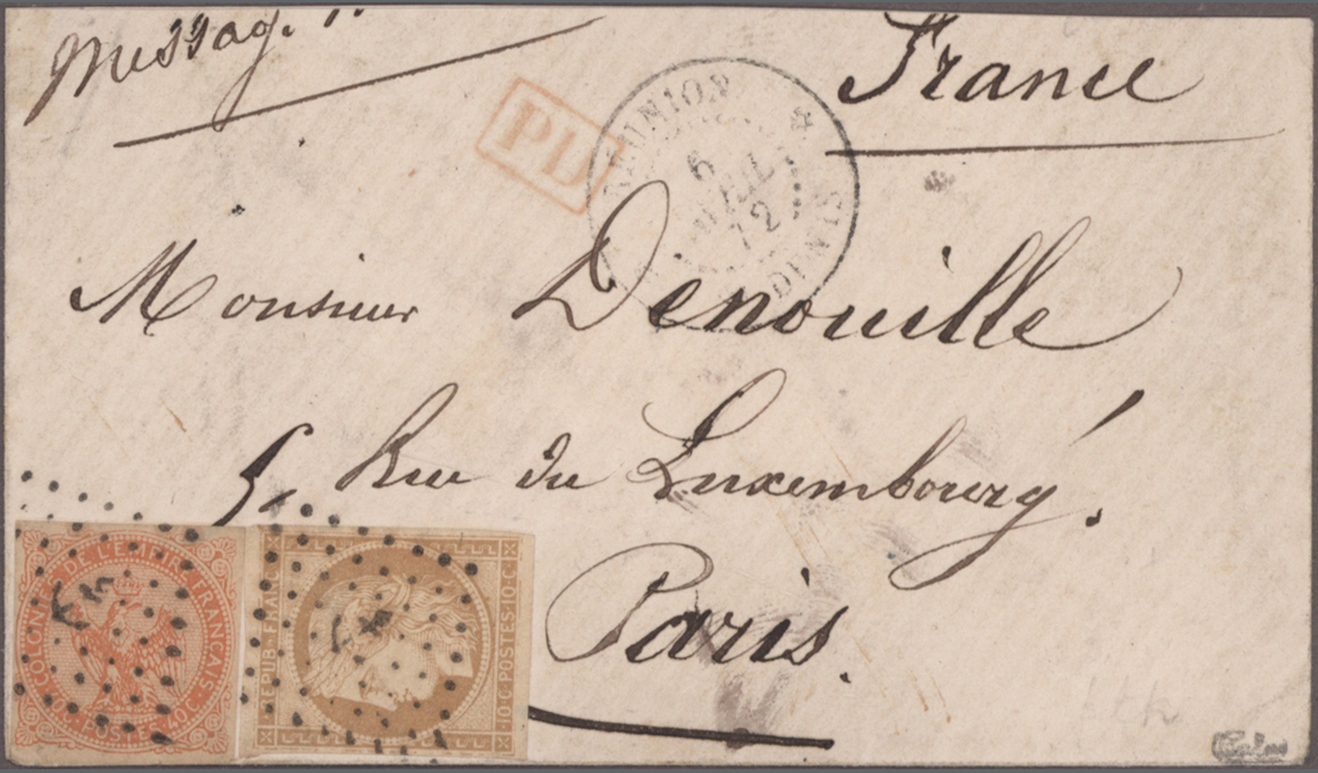 Messag.
France
PD
REUNION
6
AVRIL
72
ST DENIS
Monsieur Denouille
5, Rue du Luxembourg.
Paris.
COLONIES DE L'EMPIRE FRANCAIS.
POSTES 40 C.
REPUB. FRANC
10 C. POSTES. 10 C.